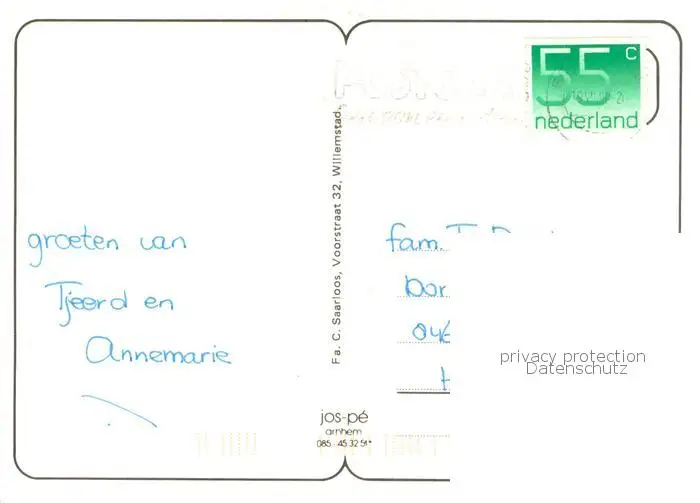 55 c
nederland
groeten van
Tjeerd en
Annemarie
Fa. C. Saarloos, Voorstraat 32, Willemstad.
fam.
privacy protection
Datenschutz
jos-pé
arnhem
085 - 45 32 51*